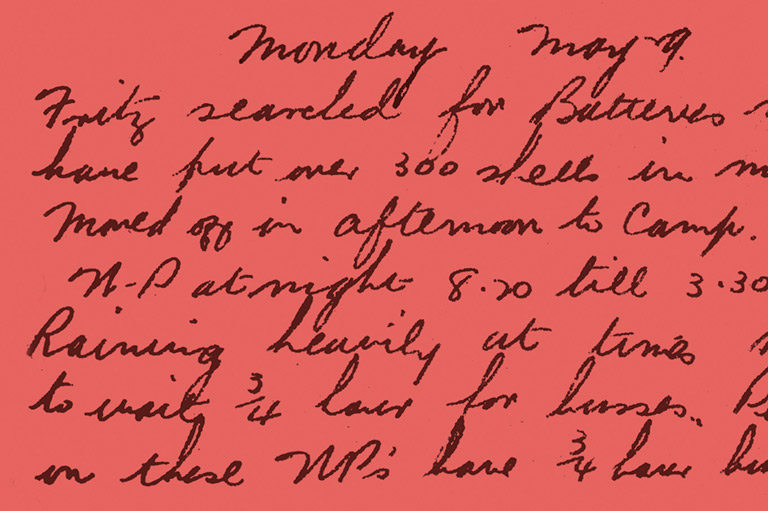 Monday May 9.
Fritz searched for Batteries
have put over 300 shells in
Moved off in afternoon to Camp.
N-P at night 8.20 till 3.30
Raining heavily at times
to wait 3/4 hour for busses.
on these NP's have 3/4 hour